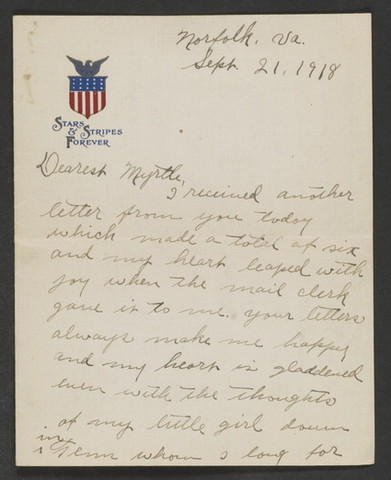 Norfolk, Va.
Sept. 21, 1918
STARS
& STRIPES
FOREVER
Dearest Myrtle,
I received another
letter from you today
which made a total of six
and my heart leaped with
joy when the mail clerk
gave it to me. your letters
always make me happy
and my heart is gladdened
even with the thoughts
of my little girl down
in Tenn whom I long for